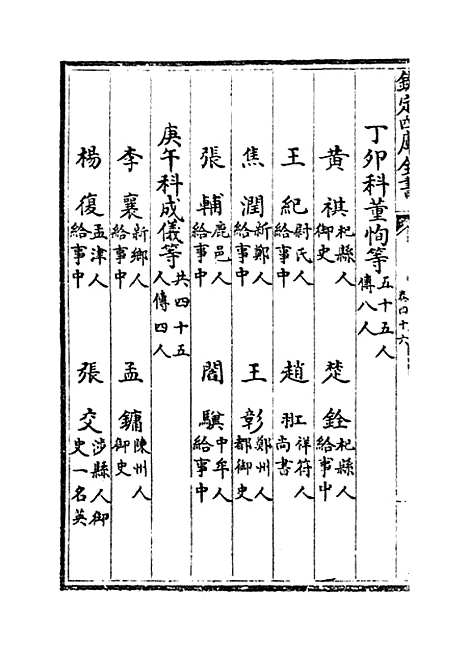 欽定四庫全書 卷四十六
丁卯科董恂等 五十五人傳八人
黃祺 杞縣人御史 楚銓 杞縣人給事中
王紀 尉氏人給事中 趙羾 祥符人尚書
焦潤 新鄭人給事中 王彰 鄭州人都御史
張輔 鹿邑人給事中 閻騏 中牟人給事中
庚午科成儀等 共四十五人傳四人
李襄 新鄉人給事中 孟鏞 陳州人御史
楊復 孟津人給事中 張交 涉縣人御史一名英